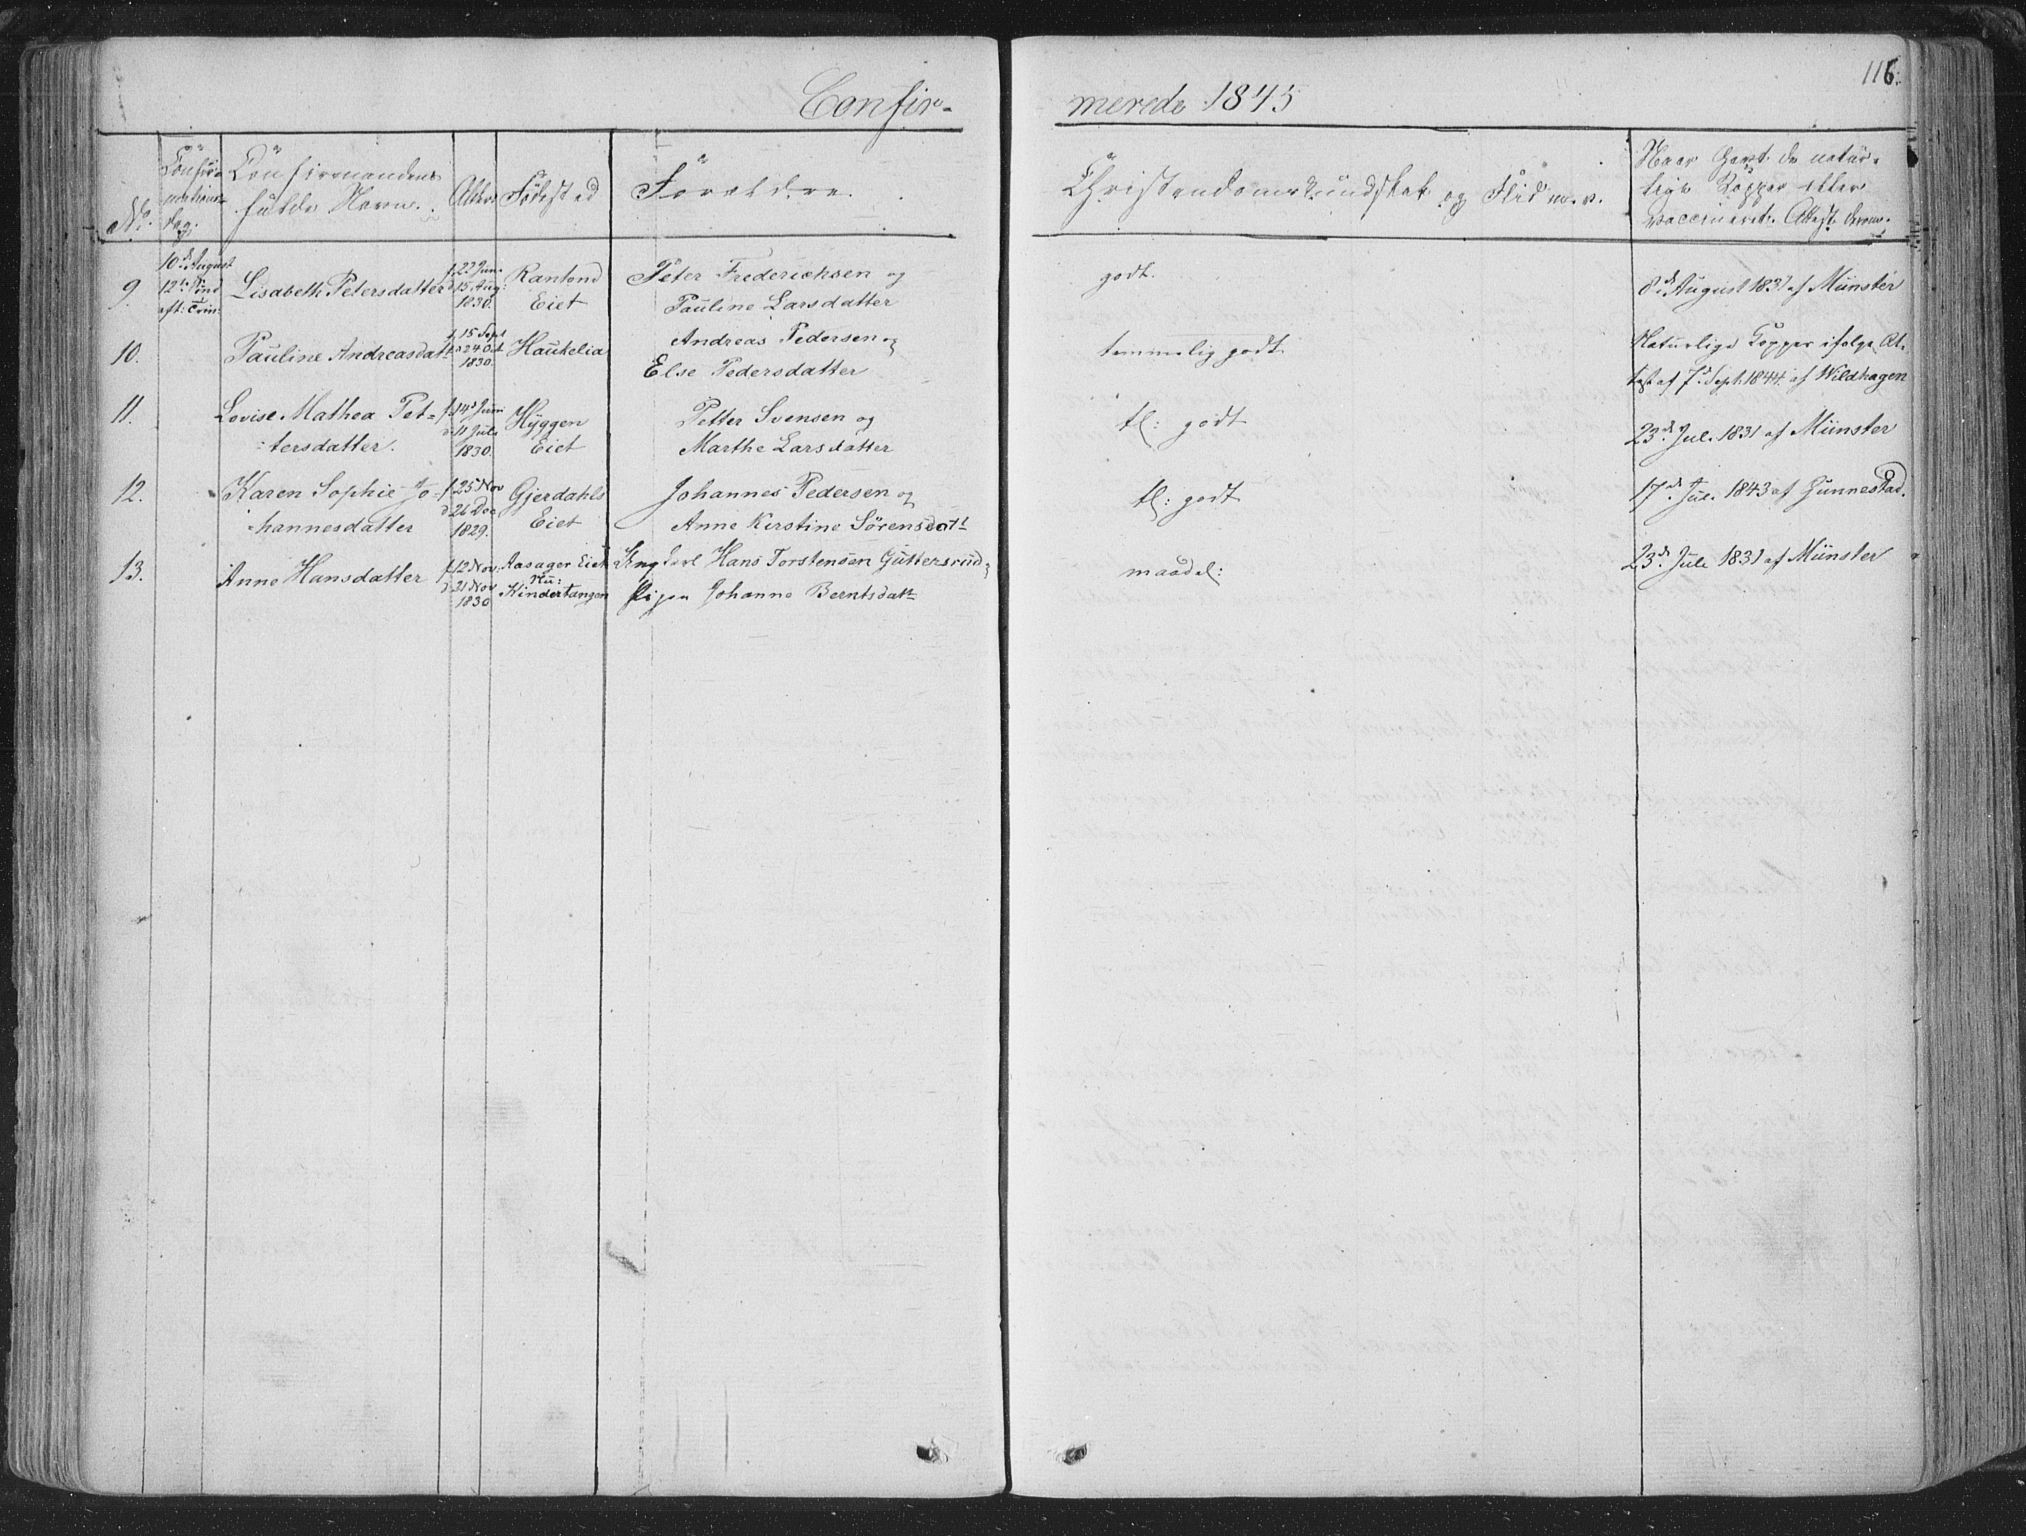 116.
Confir-
merede 1845
No.
Confir-
mations-
dag.
Confirmandens
fulde Navn.
Alder
Födested
Forældre.
Christendomskundskab og Flid m. v.
Naar havt de natur-
lige Kopper eller
vaccineret. Attest derom.
9.
10d August
12te Sönd
eft: Trin:
Lisabeth Petersdatter
f. 23 Jun.
d. 15 Aug:
1830.
Rantond
Eiet
Peter Frederichsen og
Pauline Larsdatter
godt.
8d August 1831 af Münster
10.
Pauline Andreasdatt.
f. 15 Sept
d 24 Oct
1830.
Haukelia
Andreas Pedersen og
Else Pedersdatter
temmelig godt
Naturlige Kopper ifølge At-
test af 7d Sept. 1844 af Wildhagen
11.
Lovise Mathea Pet-
tersdatter.
f. 14d Juni
d 11 Jule
1830.
Hyggen
Eiet
Petter Svensen og
Marthe Larsdatter
tl: godt
23d Jul. 1831 af Münster
12.
Karen Sophie Jo-
hannesdatter
f. 25 Nov
d 26 Dec
1829.
Gjerdahls
Eiet
Johannes Pedersen og
Anne Kirstine Sörensdatt
tl: godt
17d Jul. 1843 af Gunnestad.
13.
Anne Hansdatter
f. 12 Nov.
d 21 Nov
1830
Aasager Eiet
Nu:
Kindertangen
Ungkarl Hans Torstensen Guttersrud og
Pigen Johanne Berntsdatt
maadel:
23d Jule 1831 af Münster